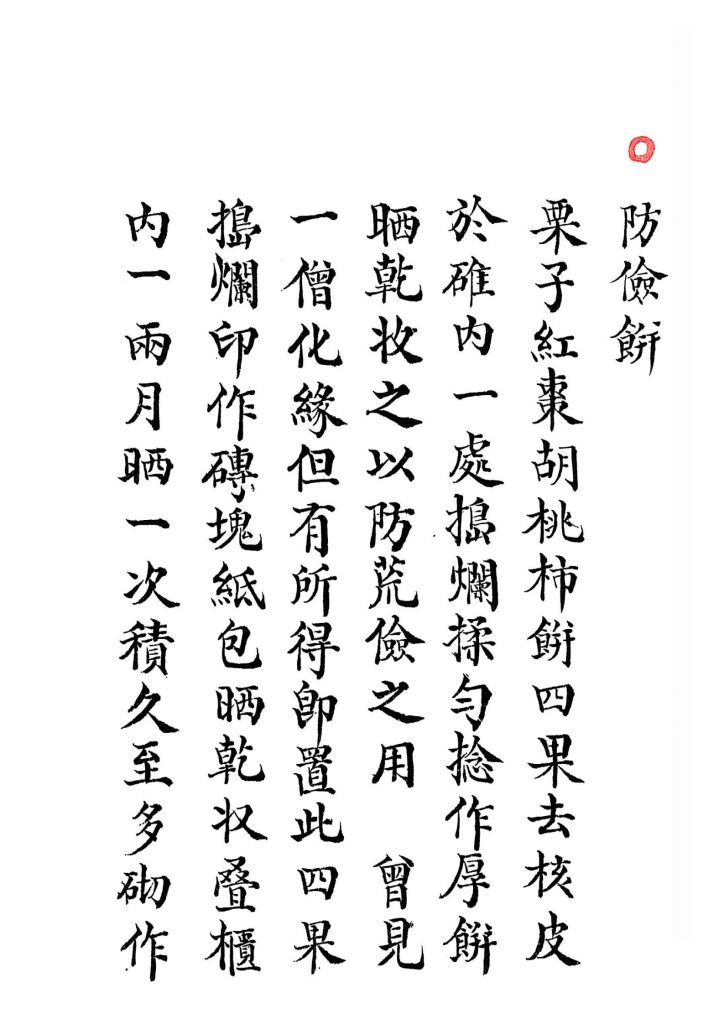 防儉餠
栗子紅棗胡桃柿餠四果去核皮
於碓内一處搗爛揉勻捻作厚餠
晒乾收之以防荒儉之用　曾見
一僧化緣但有所得即置此四果
搗爛印作磚塊紙包晒乾収疊櫃
内一兩月晒一次積久至多砌作